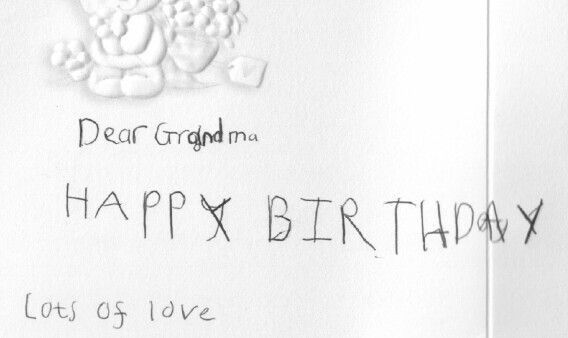 Dear Grandma
HAPPY BIRTHDAY
Lots of love